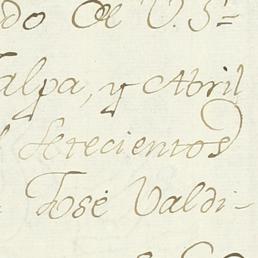 do de V. S.ª
alpa, y Abril
Setecientos
José Valdi-